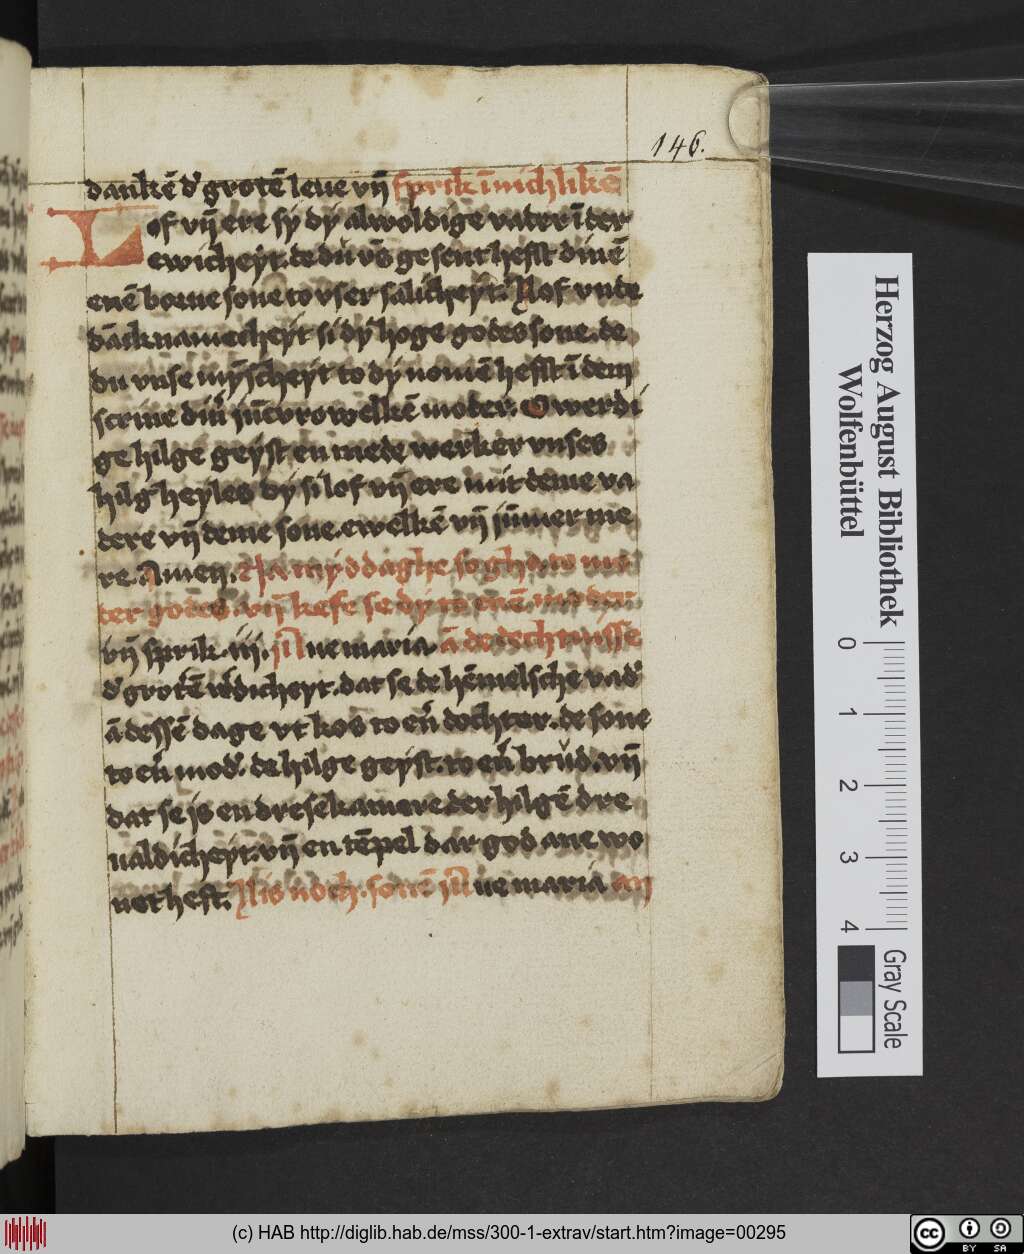 146.
dankē d' grotē leue vn̄ sprik īnichlikē
Lof vn̄ ere sy dy alwoldige vader ī der
ewicheyt. de du vns gesent hefst dinē
enē boeue sone to vser salicheyt. Lof vnde
dācknamecheyt si dy hoge godes sone. de
du vnse mȳscheyt to dy nomē hefst ī dem
scrine din' jūcvrowelkē moder. O werdi
ge hilge geyst en mede werker vnses
hilg heyles dy si lof vn̄ ere mit deme va
dere vn̄ deme sone. ewelkē vn̄ jūmer me
re. Amen. Na myddaghe so gha to mo
der godes. vn̄ kese se dy to enē
vn̄ sprik .iij. Aue maria. ā de dechtnisse
d' grotē w'dicheyt. dat se de hēmelsche vad'
ā dessē dage vt kos to en' dochter. de sone
to en' mod'. de hilge geyst. to en' brud. vn̄
dat se is en dresekamere der hilgē dre
ualdicheyt. vn̄ en tēpel dar god ane wo
net heft. Lis noch. souē Aue maria an
Herzog August Bibliothek
Wolfenbüttel
0 1 2 3 4
Gray Scale
(c) HAB http://diglib.hab.de/mss/300-1-extrav/start.htm?image=00295
cc BY SA